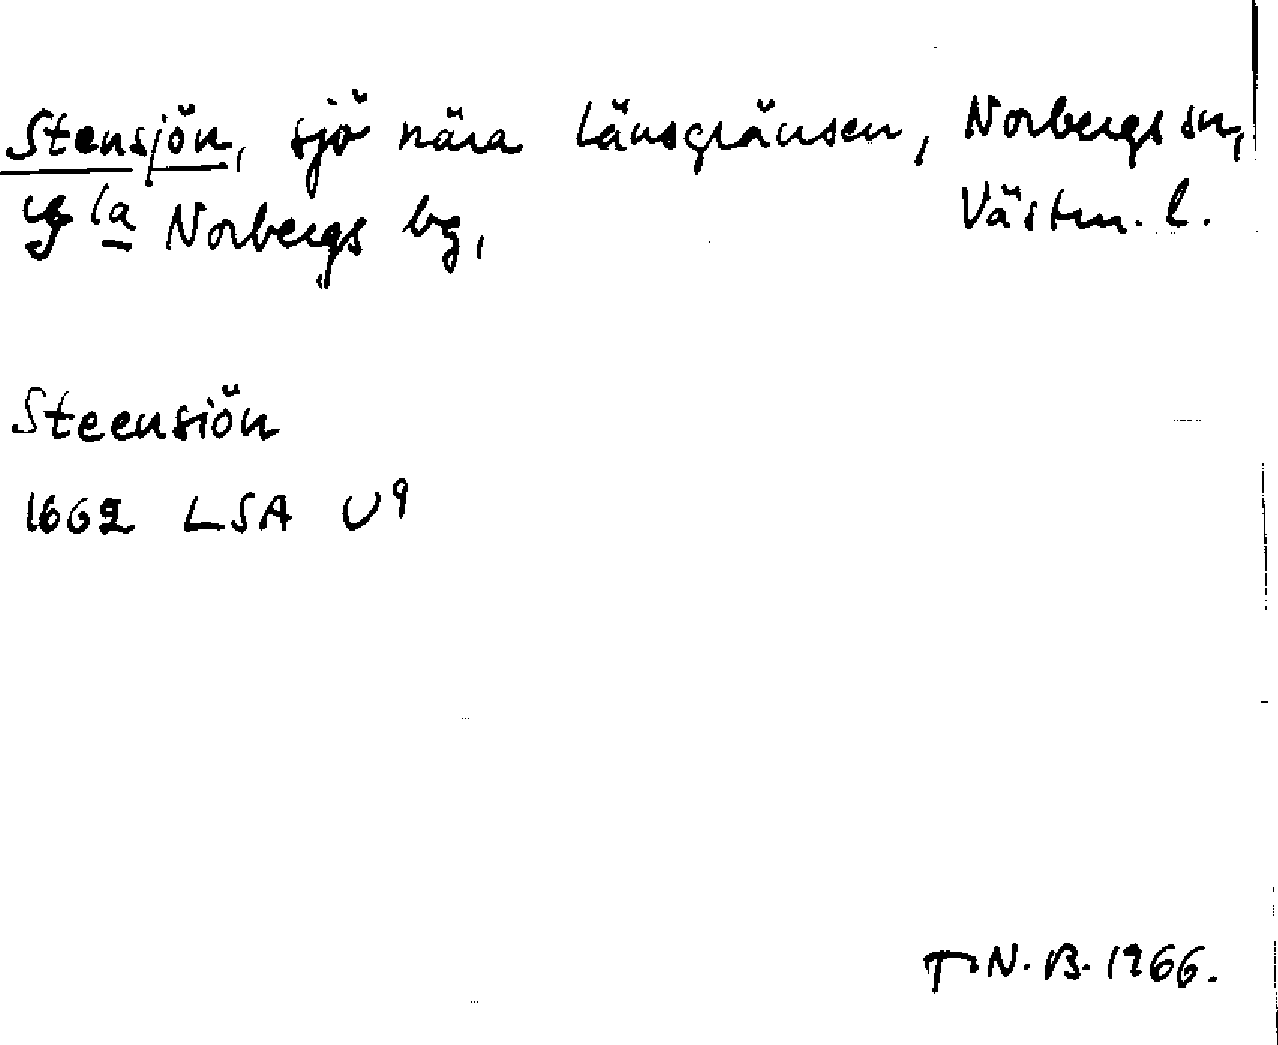 Stensjön, sjö nära länsgränsen, Norbergs sn,
G la Norbergs bg, Västm. l.
Steensiön
1662 LSA U9
T.N.B. 1966.